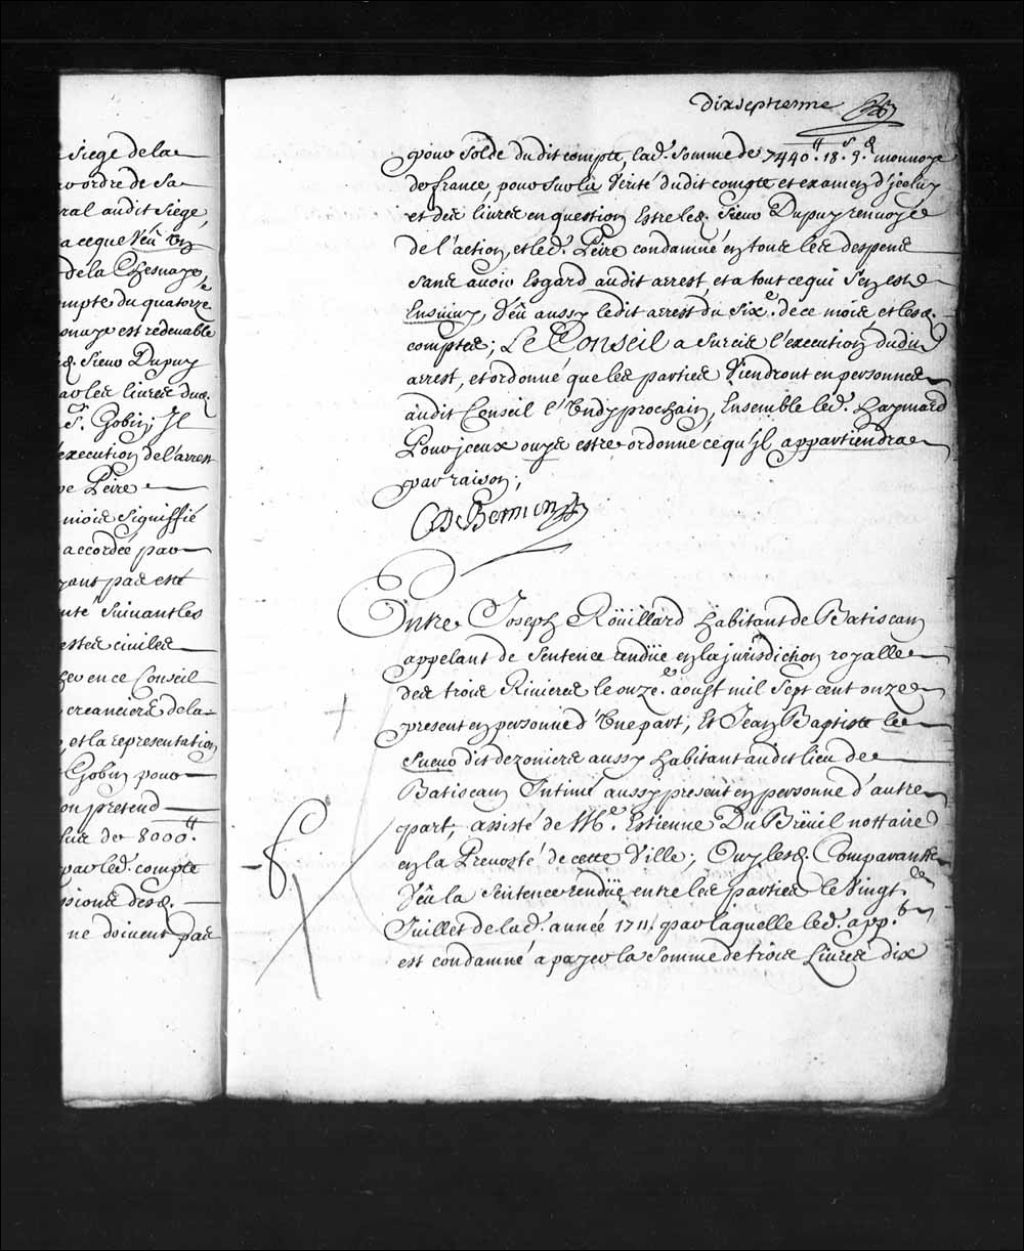 siege de la
ordre de sa
ral audit siege,
a ceque Veû
de la Chesnaye,
ompte du quatorze
onnaye est redeuable
Sieur Dupuy
par les liures dud.
S.r Gobin; Jl
execution de l'arrest
Peire
mois signiffié
accordée par
yant pas esté
Suiuant les
estes ciuiles
en ce Conseil
creanciers de la
, et la representation
Gobin pour
on pretend
plus de 8000.tt
par led. compte
ssions desd.
ne doiuent pas
dixseptiesme
pour solde dudit compte, lad. somme de 7440.tt 18.s 9.d monnoye
de france, pour sur la Verité dudit compte et examen d'jceluy
et des liures en question Estre led. Sieur Dupuy renuoyé
de l'action, et led. Peire condamné en tous les despens
sans auoir Esgard audit arrest, et a tout ce qui s'en est
Ensuiuy, Veû aussy ledit arrest du six.e de ce mois, et lesd.
comptes; Le Conseil a surcis l'execution dudit
arrest, et ordonné que les parties Viendront en personnes
audit Conseil l'Undy prochain, Ensemble led. Haymard
Pour jceux ouys estre ordonné ce qu'jl appartiendra
par raison;
DeBermen
Entre Joseph Roüillard habitant de Batiscan
appelant de sentence rendüe en la jurisdiction royalle
des trois Riuieres le onze.e aoust mil sept cent onze
present en personne d'Vne part; Et Jean Baptiste le
Sueur dit dezonieres aussy habitant audit lieu de
Batiscan Intimé aussy present en personne d'autre
part, assisté de M.e Estienne Du Breüil nottaire
en la Preuosté de cette Ville; Ouy lesd. Comparants
Veu la sentence rendüe entre les parties le Vingt
Juillet de lad. année 1711. par laquelle led. app.t
est condamné a payer la somme de trois Liures dix